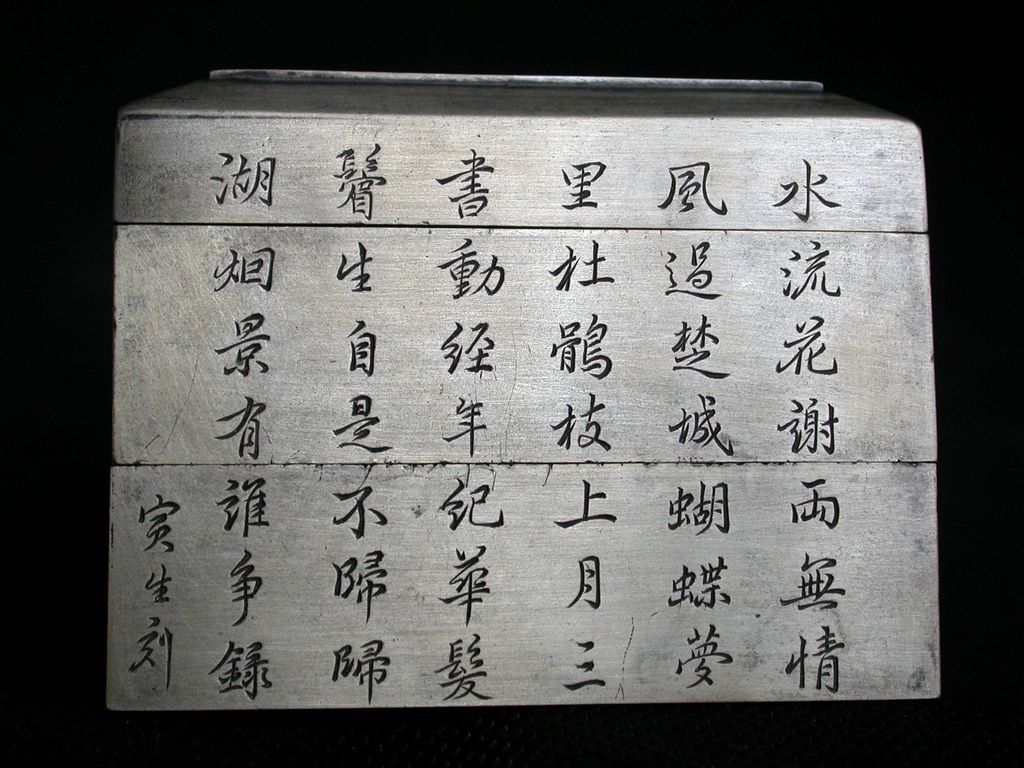 水流花謝兩無情
風過楚城蝴蝶夢
里杜鵑枝上月三
書動經年紀華髮
鬢生自是不歸歸
湖烟景有誰爭錄
寅生刻